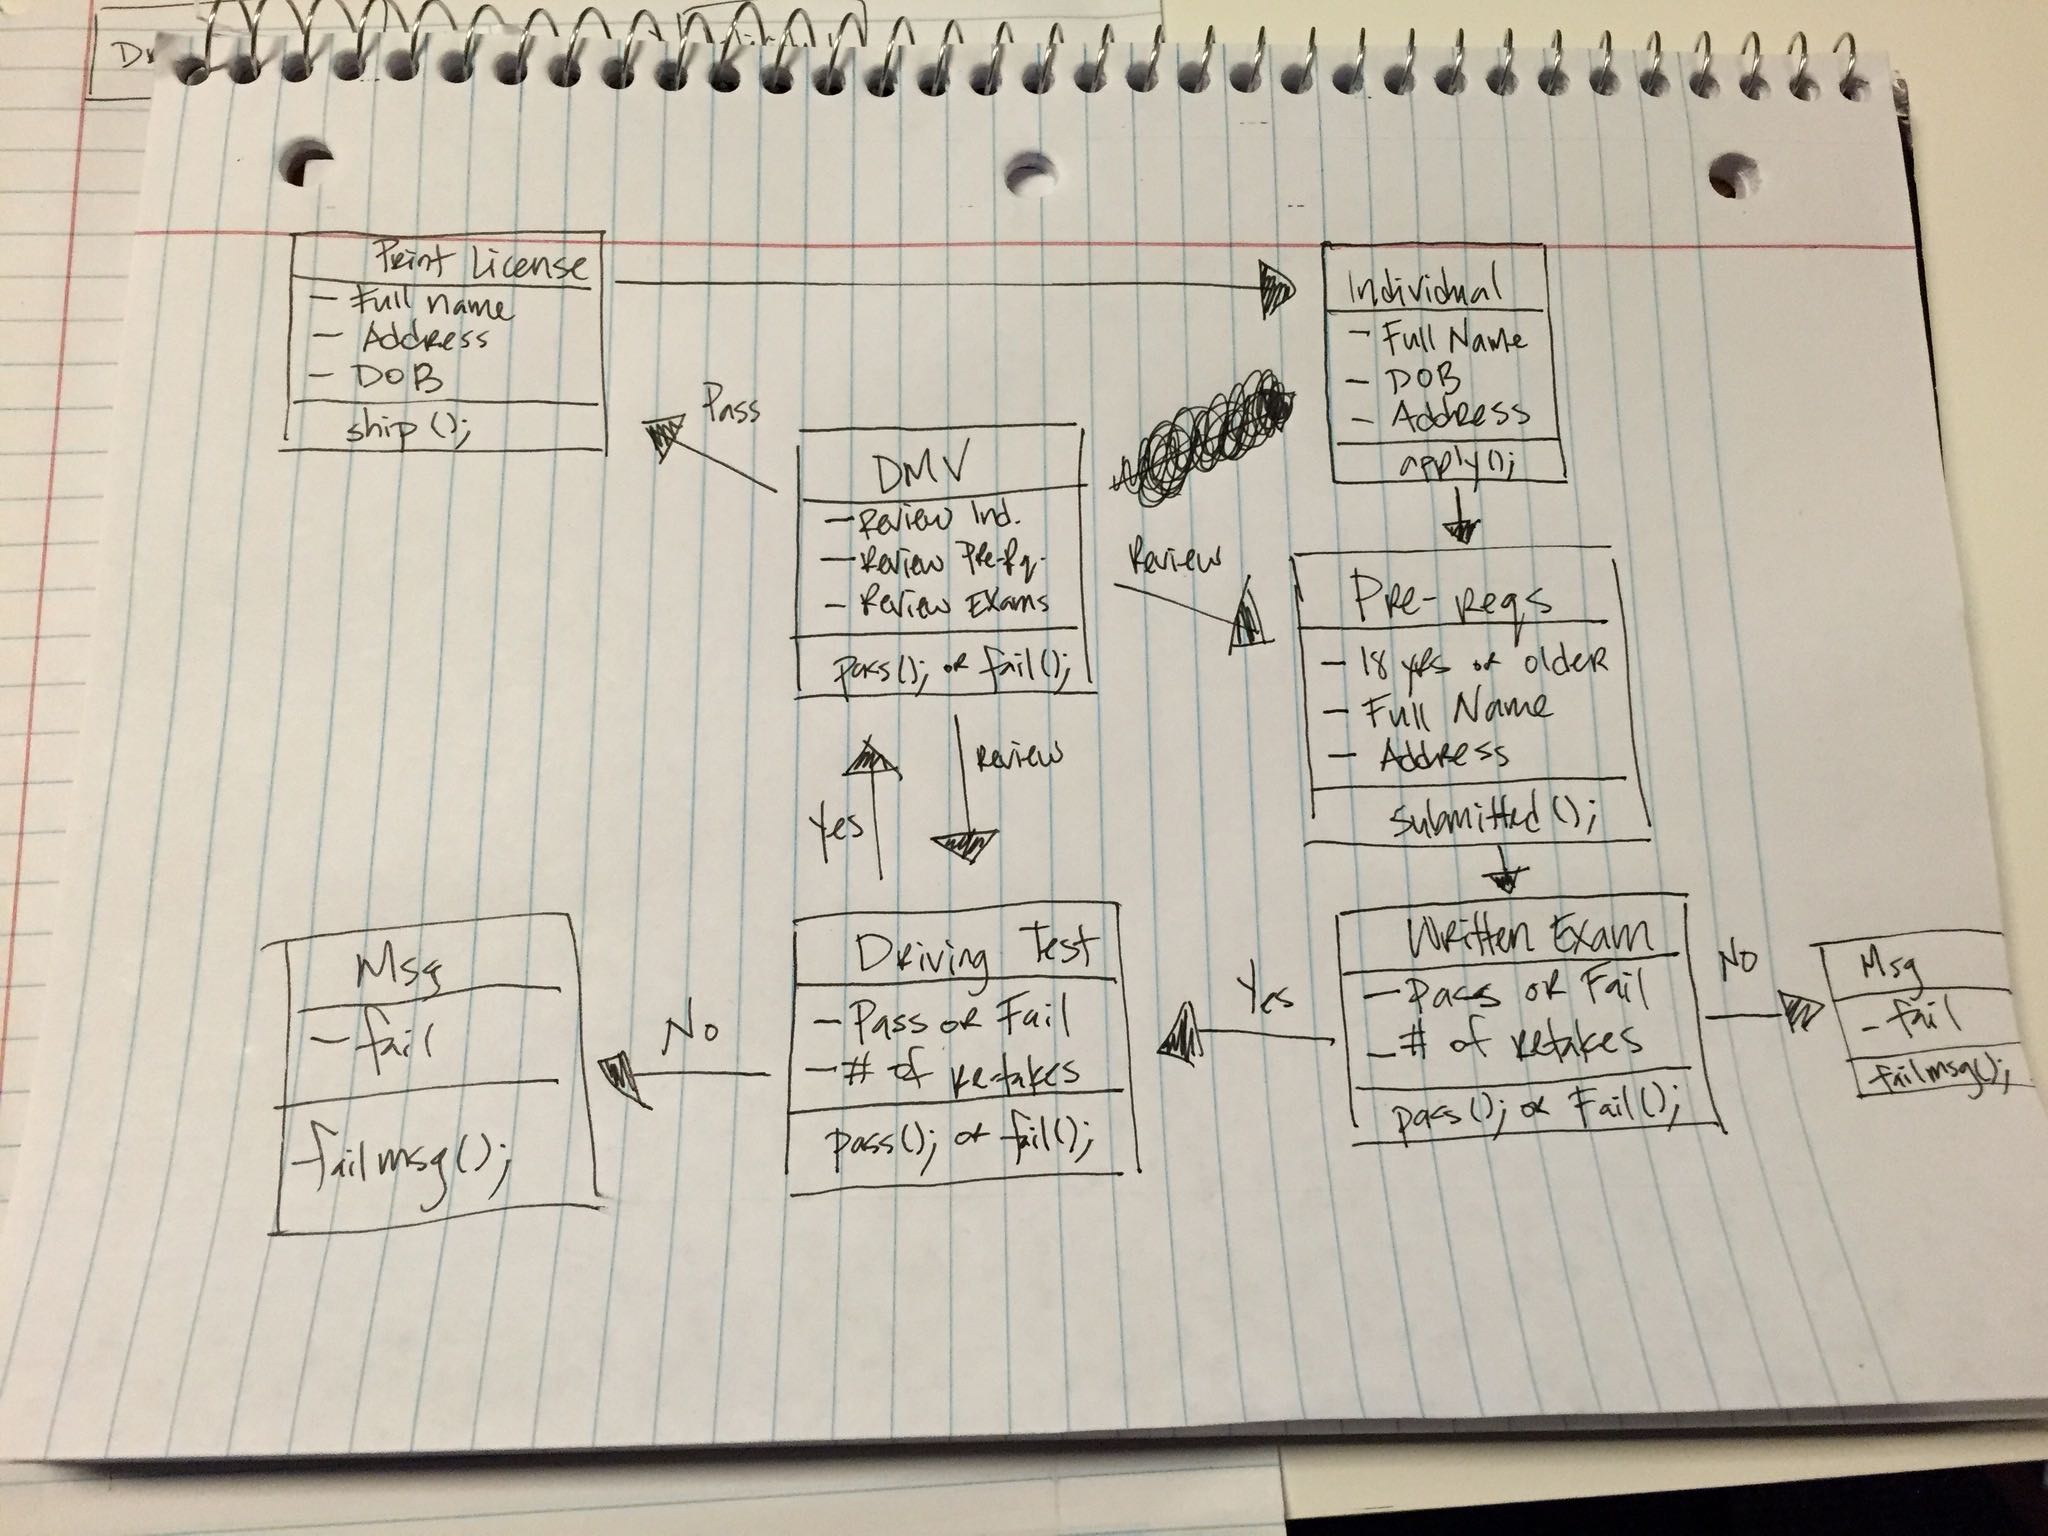 Dr
Print License
- Full name
- Address
- DOB
ship();
Individual
- Full Name
- DOB
- Address
apply();
Pass
DMV
- Review Ind.
- Review Pre-Rq.
- Review Exams
pass(); or fail();
Review
Pre-reqs
- 18 yrs or older
- Full Name
- Address
submitted();
Yes
Review
Msg
- fail
failmsg();
No
Driving Test
- Pass or Fail
- # of retakes
pass(); or fail();
Yes
Written Exam
- Pass or Fail
- # of retakes
pass(); or Fail();
No
Msg
- fail
failmsg();